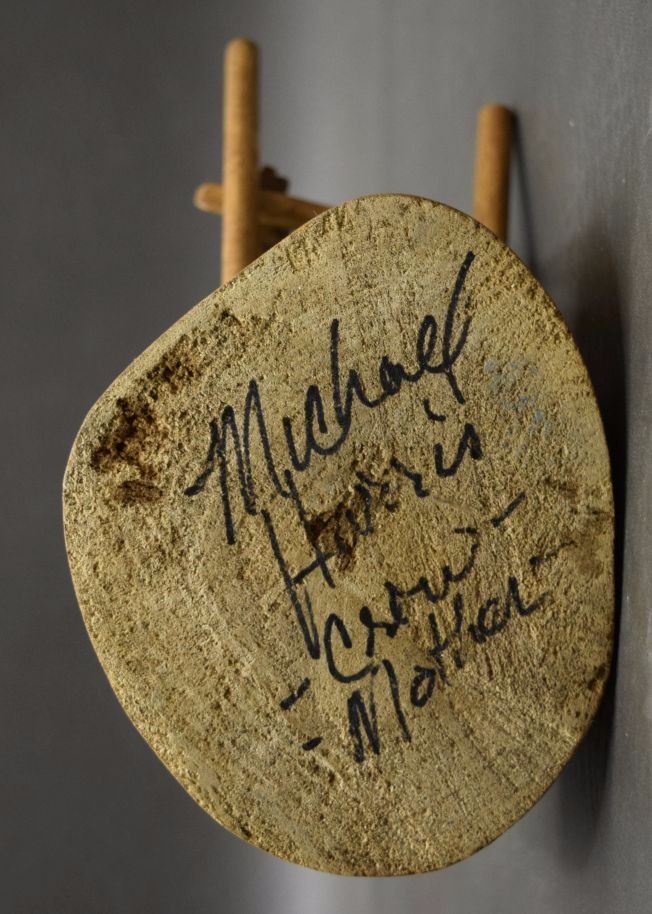 Michael
Harris
- Crow -
- Mother -